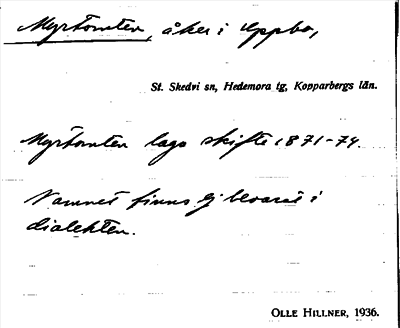 Myrtomten, åker i Uppbo,
St. Skedvi sn, Hedemora tg, Kopparbergs län.
Myrtomten laga skifte 1871-74.
Namnet finns ej bevarat i
dialekten.
OLLE HILLNER, 1936.